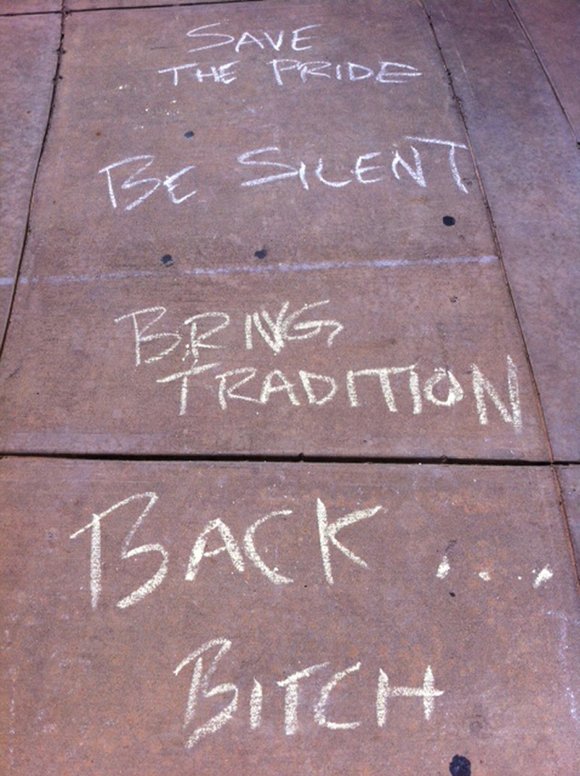 SAVE
THE PRIDE
BE SILENT
BRING
TRADITION
BACK ...
BITCH